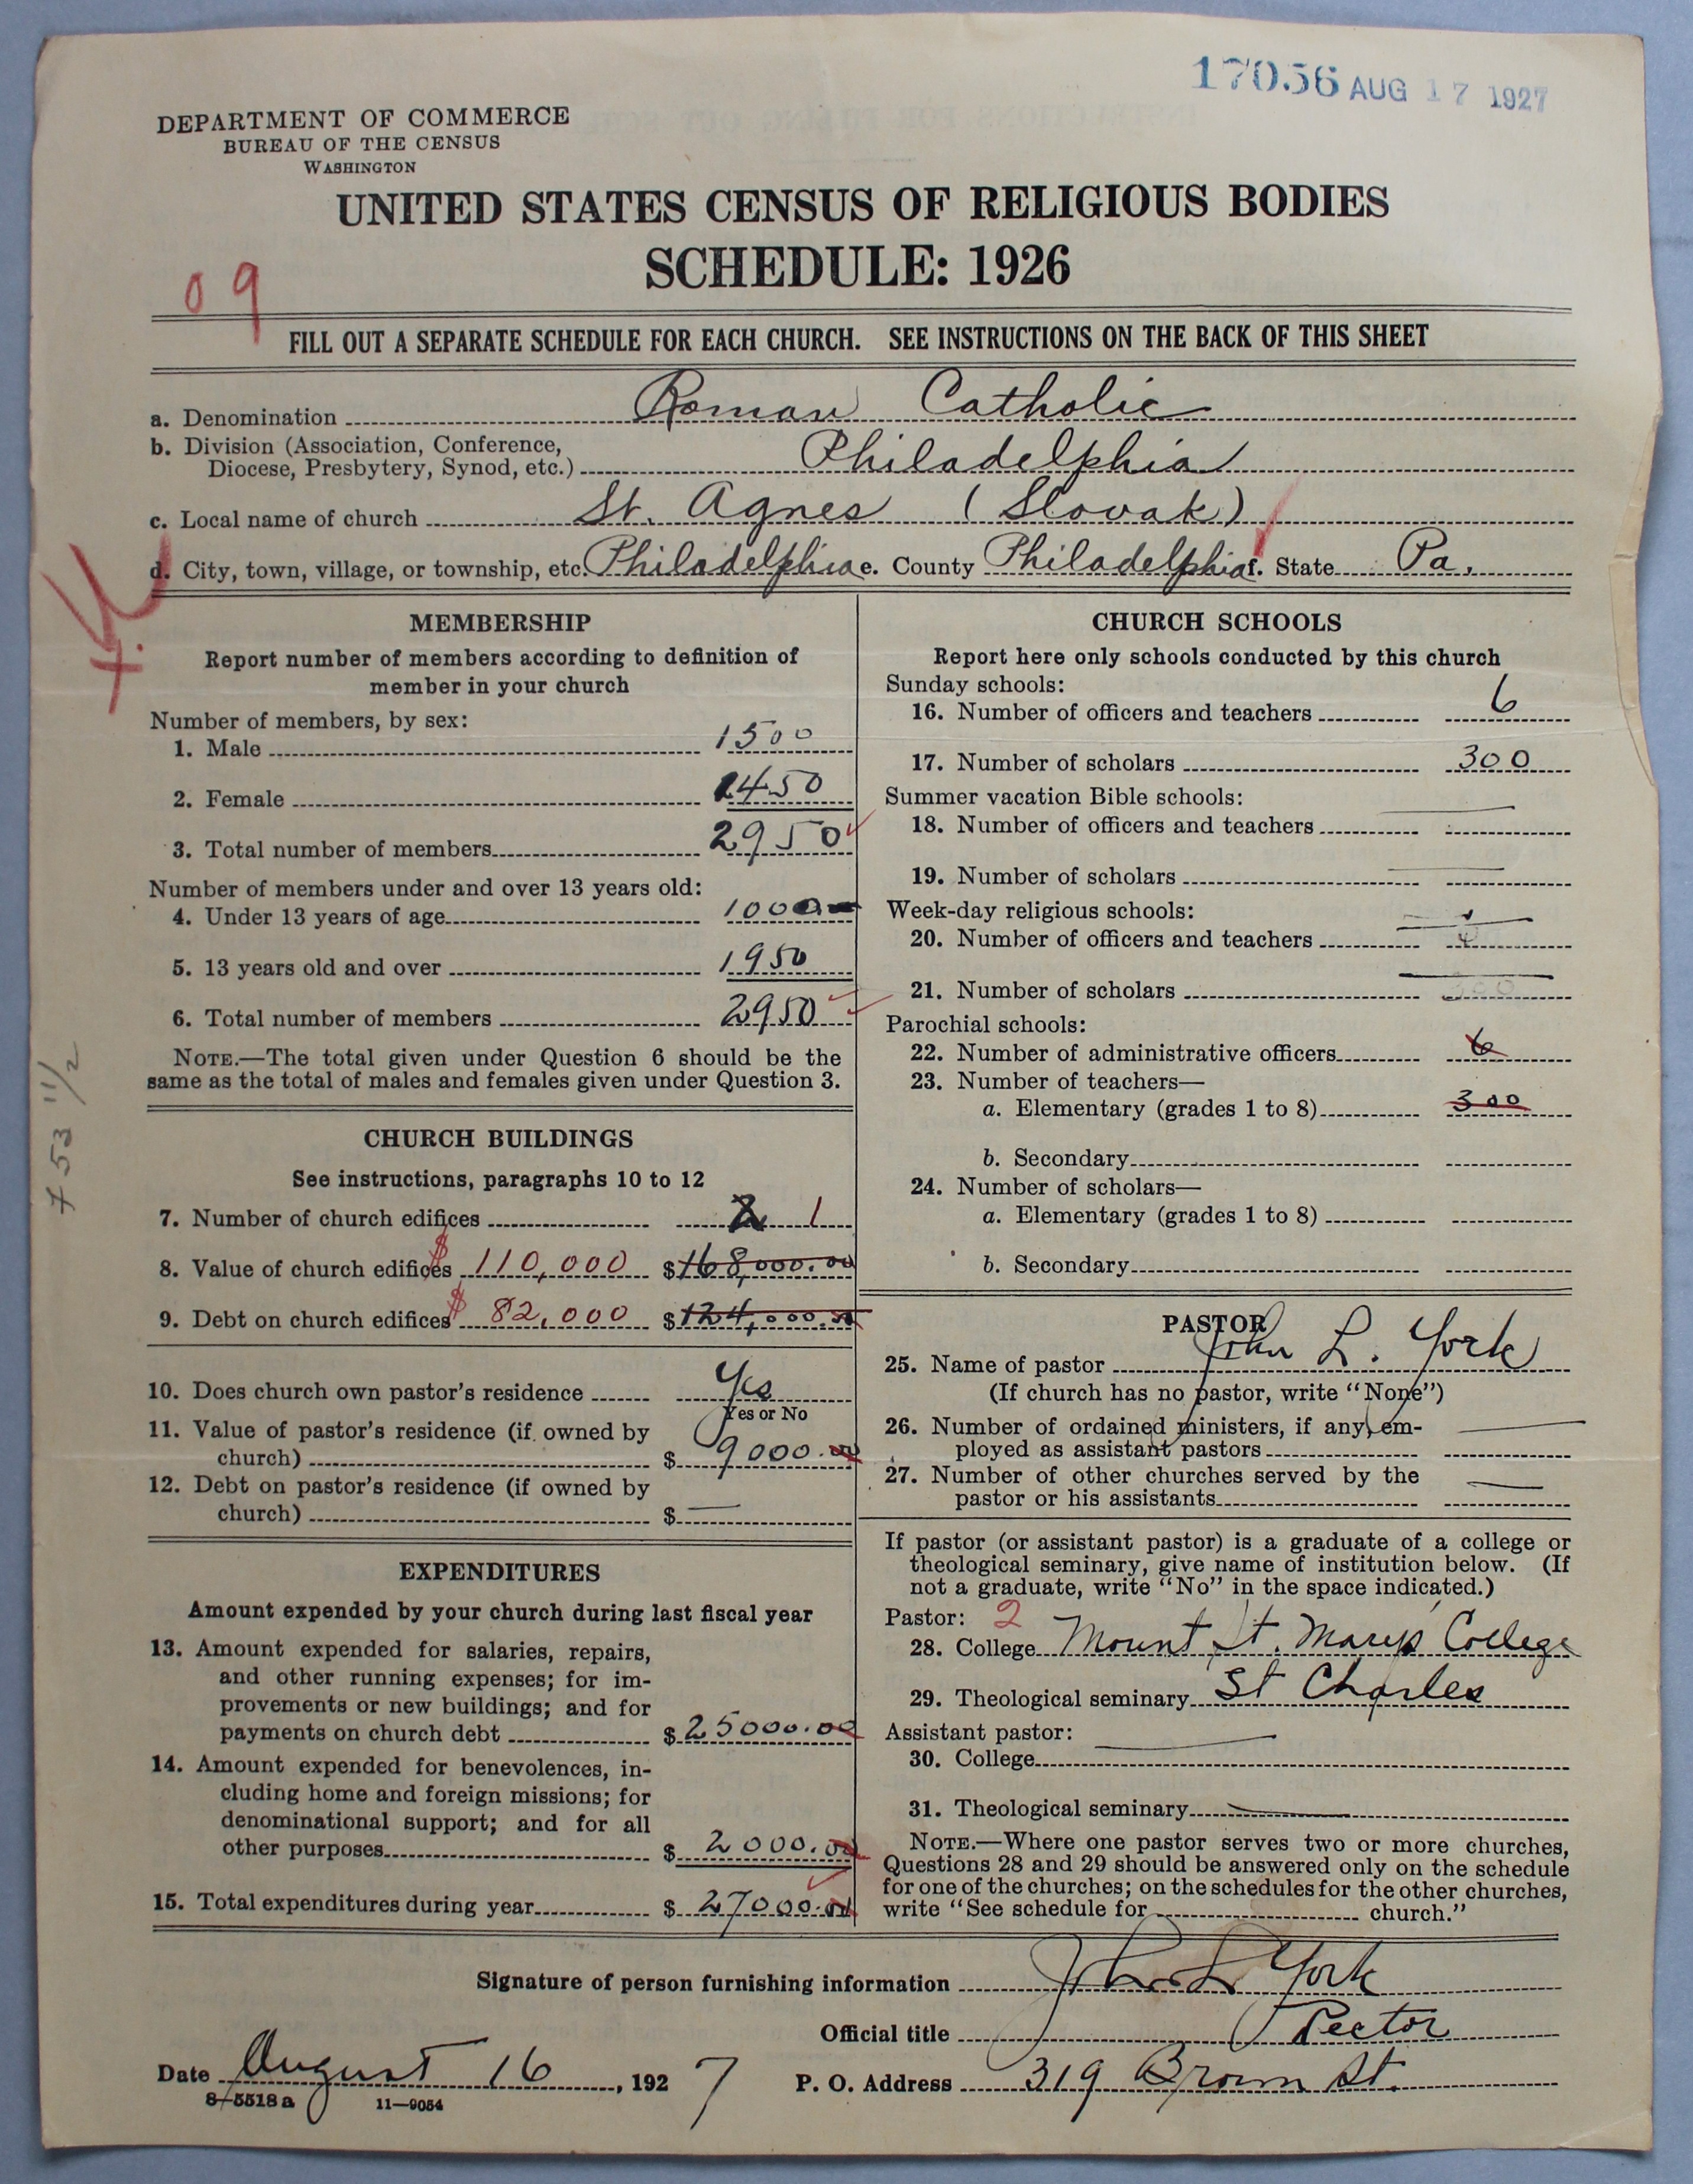 17056 AUG 17 1927
DEPARTMENT OF COMMERCE
BUREAU OF THE CENSUS
WASHINGTON
UNITED STATES CENSUS OF RELIGIOUS BODIES
SCHEDULE: 1926
09
FILL OUT A SEPARATE SCHEDULE FOR EACH CHURCH. SEE INSTRUCTIONS ON THE BACK OF THIS SHEET
a. Denomination Roman Catholic
b. Division (Association, Conference,
Diocese, Presbytery, Synod, etc.) Philadelphia
c. Local name of church St. Agnes (Slovak)
d. City, town, village, or township, etc. Philadelphia e. County Philadelphia f. State Pa.
MEMBERSHIP
Report number of members according to definition of
member in your church
Number of members, by sex:
1. Male 1500
2. Female 1450
3. Total number of members 2950
Number of members under and over 13 years old:
4. Under 13 years of age 1000
5. 13 years old and over 1950
6. Total number of members 2950
NOTE.—The total given under Question 6 should be the
same as the total of males and females given under Question 3.
CHURCH BUILDINGS
See instructions, paragraphs 10 to 12
7. Number of church edifices 2 1
8. Value of church edifices $ 110,000 $168,000.00
9. Debt on church edifices $ 82,000 $124,000.00
10. Does church own pastor's residence Yes
Yes or No
11. Value of pastor's residence (if owned by
church) $ 9000.00
12. Debt on pastor's residence (if owned by
church) $ —
EXPENDITURES
Amount expended by your church during last fiscal year
13. Amount expended for salaries, repairs,
and other running expenses; for im-
provements or new buildings; and for
payments on church debt $ 25000.00
14. Amount expended for benevolences, in-
cluding home and foreign missions; for
denominational support; and for all
other purposes $ 2000.00
15. Total expenditures during year $ 27000.00
CHURCH SCHOOLS
Report here only schools conducted by this church
Sunday schools:
16. Number of officers and teachers 6
17. Number of scholars 300
Summer vacation Bible schools:
18. Number of officers and teachers —
19. Number of scholars —
Week-day religious schools:
20. Number of officers and teachers —
21. Number of scholars —
Parochial schools:
22. Number of administrative officers 6
23. Number of teachers—
a. Elementary (grades 1 to 8) 300
b. Secondary
24. Number of scholars—
a. Elementary (grades 1 to 8)
b. Secondary
PASTOR
25. Name of pastor John L. York
(If church has no pastor, write "None")
26. Number of ordained ministers, if any, em-
ployed as assistant pastors —
27. Number of other churches served by the
pastor or his assistants —
If pastor (or assistant pastor) is a graduate of a college or
theological seminary, give name of institution below. (If
not a graduate, write "No" in the space indicated.)
Pastor: 2
28. College Mount St. Mary's College
29. Theological seminary St Charles
Assistant pastor: —
30. College
31. Theological seminary —
NOTE.—Where one pastor serves two or more churches,
Questions 28 and 29 should be answered only on the schedule
for one of the churches; on the schedules for the other churches,
write "See schedule for church."
Signature of person furnishing information John L York
Official title Rector
Date August 16, 1927 P. O. Address 319 Brown St.
8—5518a 11—9054